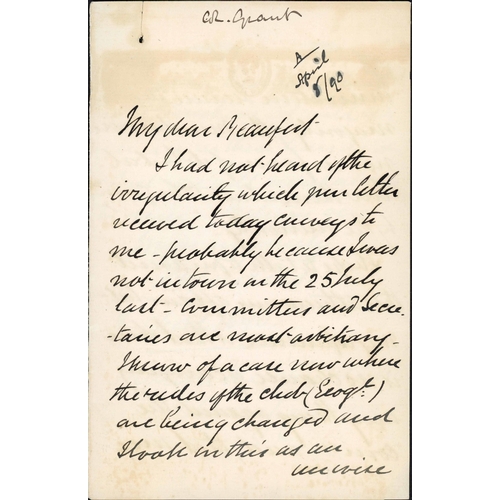 Col. Grant
A
April
8/90
My dear Beaufort
I had not heard of the
irregularity which your letter
received today conveys to
me - probably because I was
not in town on the 25 July
last - Committees and Secre-
-taries are most arbitrary -
I know of a case now where
the rules of the club (Geogl.)
are being changed and
I look on this as an
unwise